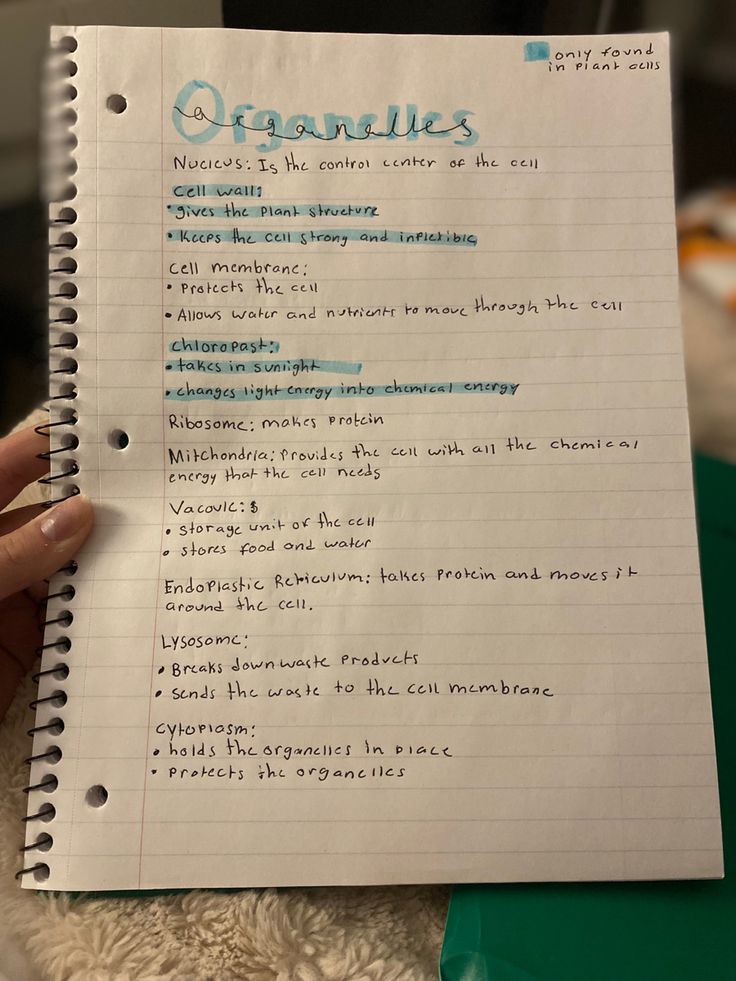 only found
in plant cells
Organelles
organelles
Nucleus: Is the control center of the cell
Cell wall:
• gives the plant structure
• Keeps the cell strong and inflexible
Cell membrane:
• Protects the cell
• Allows water and nutrients to move through the cell
Chloropast:
• takes in sunlight
• changes light energy into chemical energy
Ribosome: makes protein
Mitchondria: Provides the cell with all the chemical
energy that the cell needs
Vacoule:
• Storage unit of the cell
• stores food and water
Endoplastic Reticulum: takes protein and moves it
around the cell.
Lysosome:
• Breaks down waste products
• Sends the waste to the cell membrane
Cytoplasm:
• holds the organelles in place
• Protects the organelles